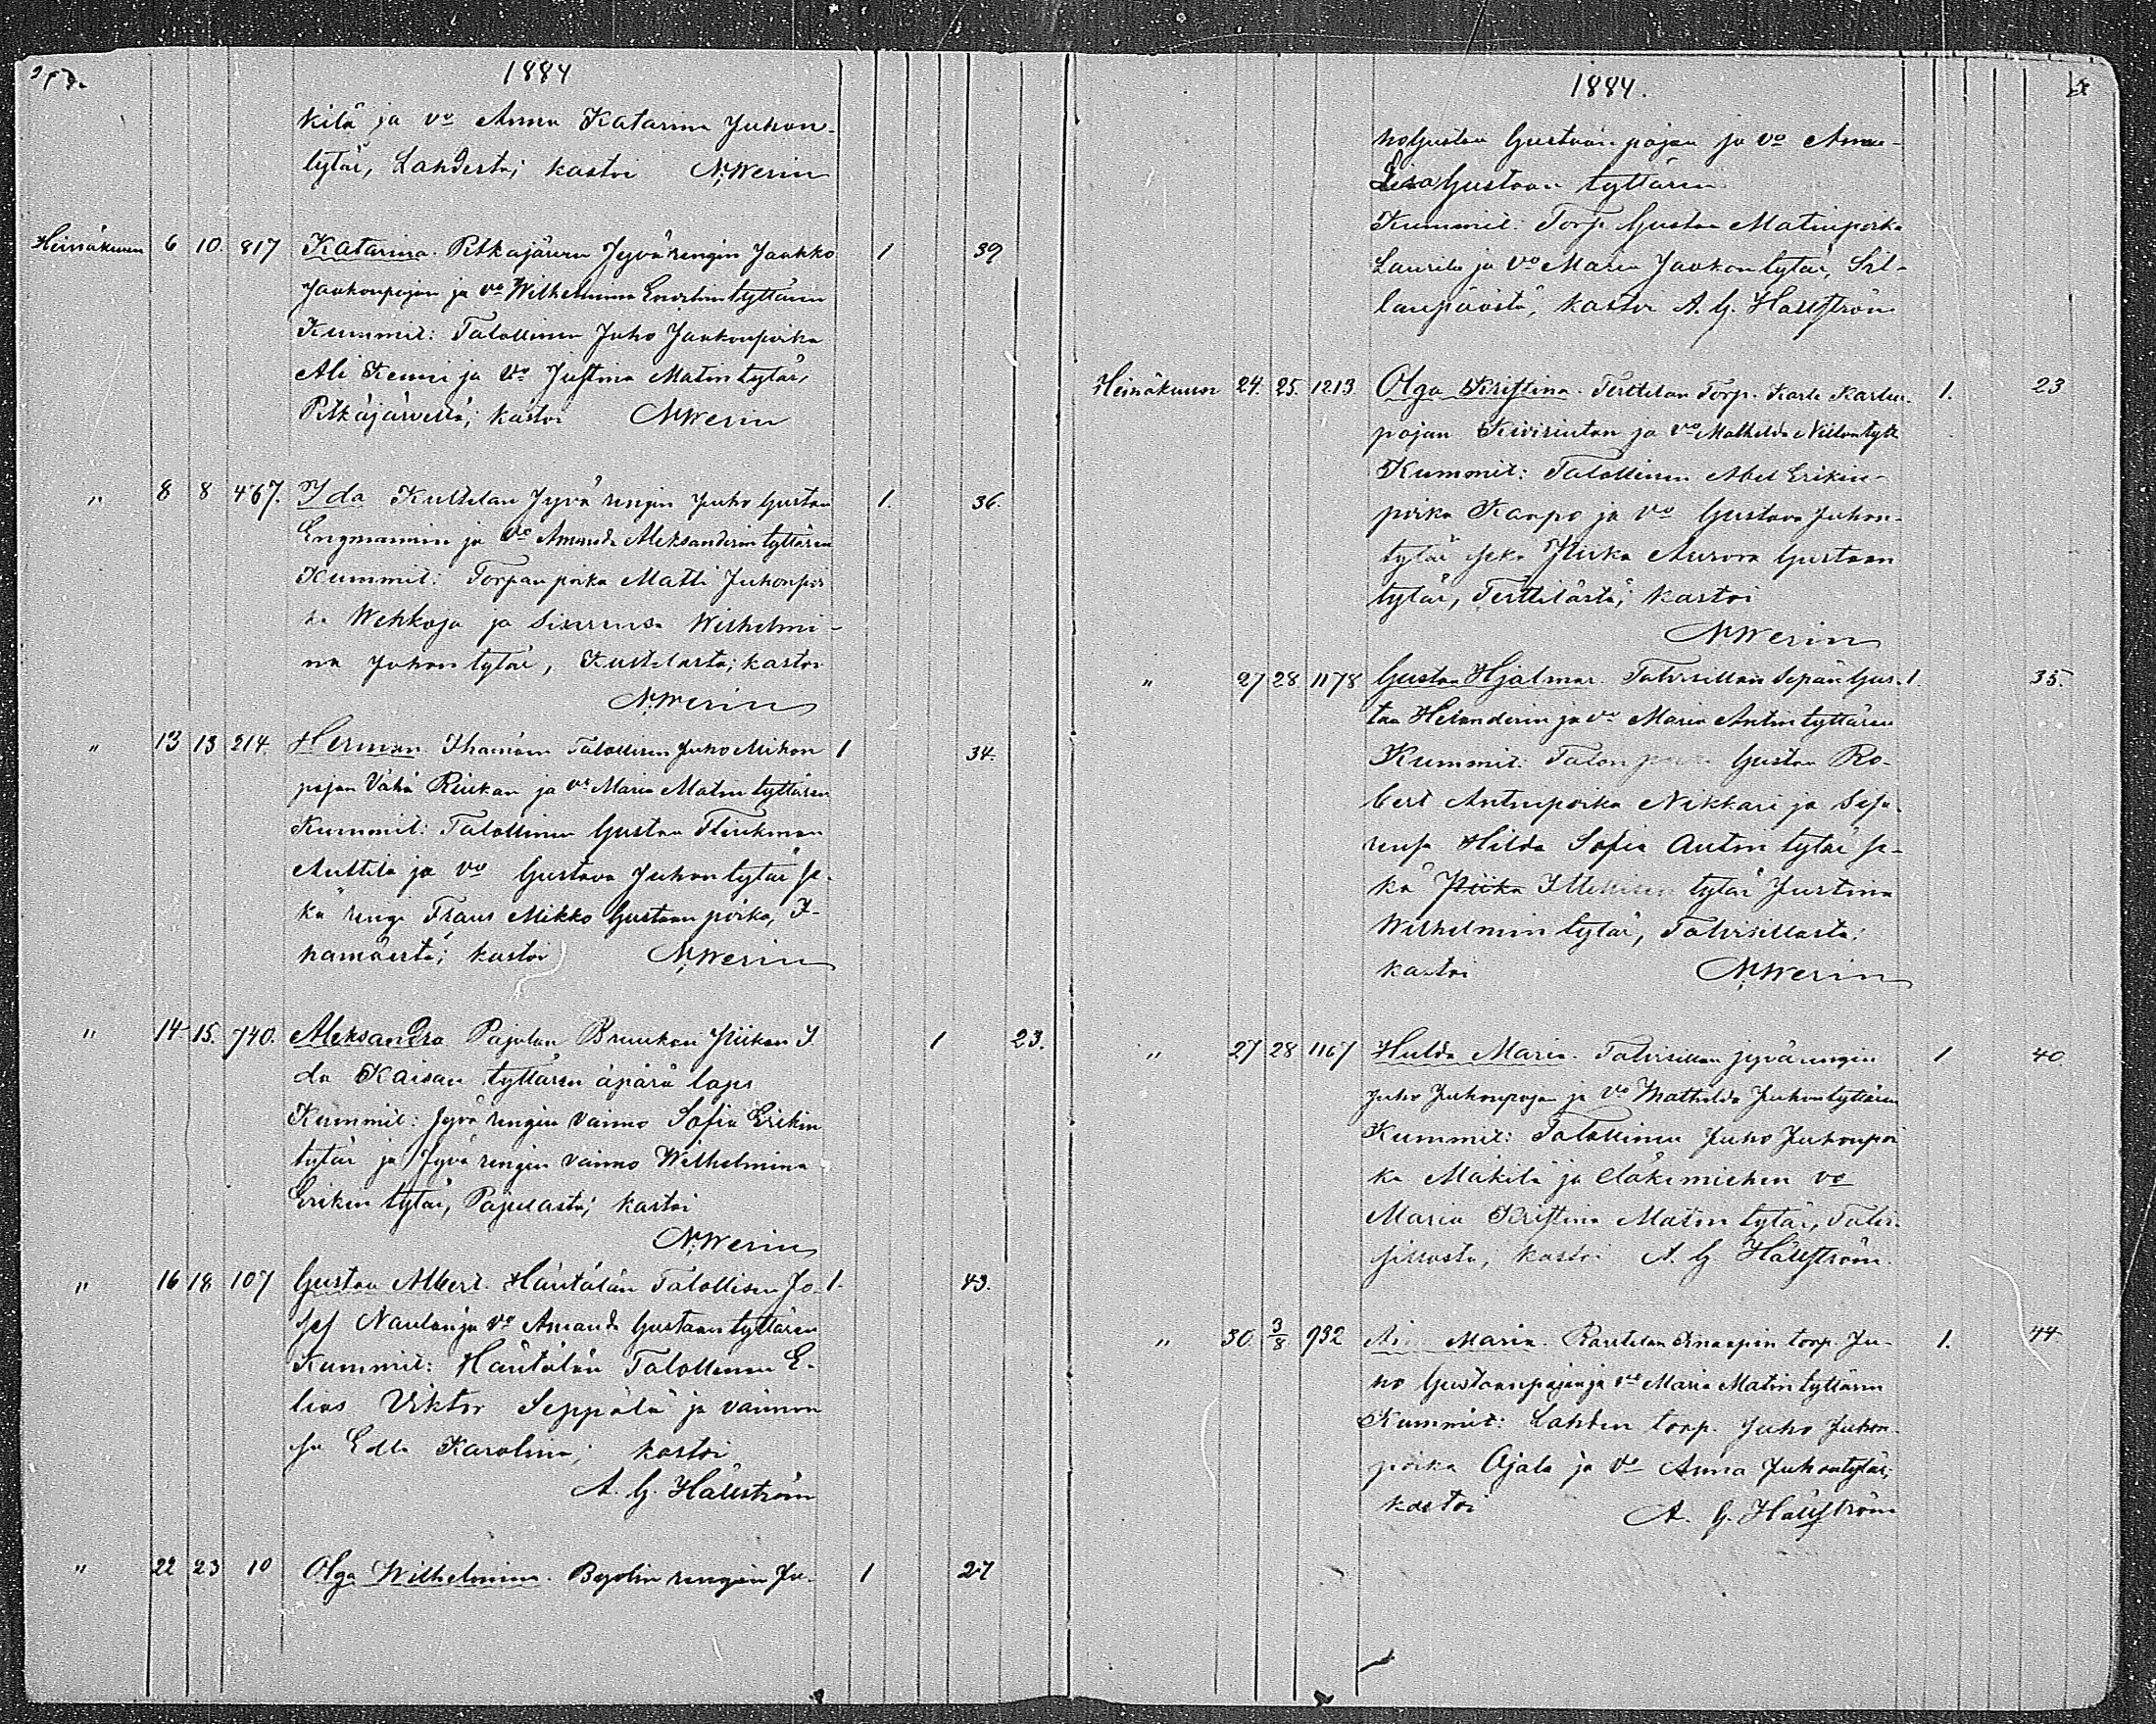 1884
kilä ja vo Anna Katarina Juhon-
tytär, Lahdesta; kastoi N. Werin
Heinäkuun 6 10. 817 Katarina. Pitkäjärven Jyvärengin Jaakko 1 39
Jaakonpojan ja vo Wilhelmina tyttären
Kummit: Talollinen Juho Jaakonpoika
Ali Kenni ja vo Justina Matin tytär,
Pitkäjärveltä; kastoi N. Werin
" 8 8 467. Ida Kuttilan Jyvä rengin Juho Gustaa 1. 36.
Engmannin ja vo Amanda Aleksanderin tyttären
Kummit: Torpan poika Matti Juhonpoi
ka Wehkoja ja Sisarensa Wilhelmi-
na Juhon tytär, kastoi
N. Werin
" 13 13 214. Herman Ihamäen Talollisen Juho Mikon 1 34.
pojan Vähä Riukan ja vo Maria Matin tyttären
Kummit: Talollinen Gustaa Flinkman
Anttila ja vo Gustava Juhon tytär se-
kä renge Frans Mikko Gustaan poika, I-
hamäestä; kastoi N. Werin
" 14 15. 740. Aleksandra Pajulan Bruukan Piikan I 1 23.
da Kaisan tyttären äpärä laps
Kummit: Jyvä rengin vaimo Sofia Erikin
tytär ja Jyvä rengin vaimo Wilhelmina
Erikin tytär, Pajulasta; kastoi
N. Werin
" 16 18 107 Gustaa Albert. Häntälän Talollisen Jo- 1. 43.
sef Naulan ja vo Amanda Gustaan tyttären
Kummit: Häntälän Talollinen E-
lias Viktor Seppälä ja vaimon
sa Edla Karolina; kastoi
A. G. Hällström
" 22 23 10 Olga Wilhelmina. rengin Ju- 1 27
1884.
ho Gustaa Gustaan pojan ja vo Anna-
Lisa Gustaan tyttären
Kummit: Torp. Gustaa Matinpoika
Laurila ja vo Maria Jaakon tytär, Sil-
länpäästä, kastoi A. G. Hällström
Heinäkuun 24. 25. 1213 Olga Kristina. Terttilän Torp. Karle Karlen- 1. 23
pojan Kivirintan ja vo Mathilda Niilon tytt
Kummit: Talollinen Abel Erikin-
poika Kaapo ja vo Gustava Juhon-
tytär seka Piika Aurora Gustaan
tytär, Terttilästä; kastoi
N. Werin
" 27 28 1178 Gustaa Hjalmar. Talvisillan Sepän Gus- 1. 35.
taa Helanderin ja vo Maria Antin tyttären
Kummit: Talon Gustaa Ro-
bert Antinpoika Nikkari ja Sisa-
rensa Hilda Sofia Antin tytär se-
kä Piika Itellisen tytär Justina
Wilhelmin tytär, Talvisillasta:
kastoi N. Werin
" 27 28 1167 Hulda Maria. Talvisillan jyvärengin 1 40.
Juho Juhonpojan ja vo Mathilda Juhontyttären
Kummit: Talollinen Juho Juhonpoi
ka Mäkilä ja eläkemiehen vo
Maria Kristina Matin tytär, Talvi-
sillasta, kastoi A. G. Hällström.
" 30. 3/8 932 Maria. Rautelan torp. Ju- 1. 44
ho Gustaanpojan ja vo Maria Matin tyttären
Kummit: Lahden torp. Juho Juhon-
poika Ajala ja vo Anna Juhontytär;
kastoi A. G. Hällström